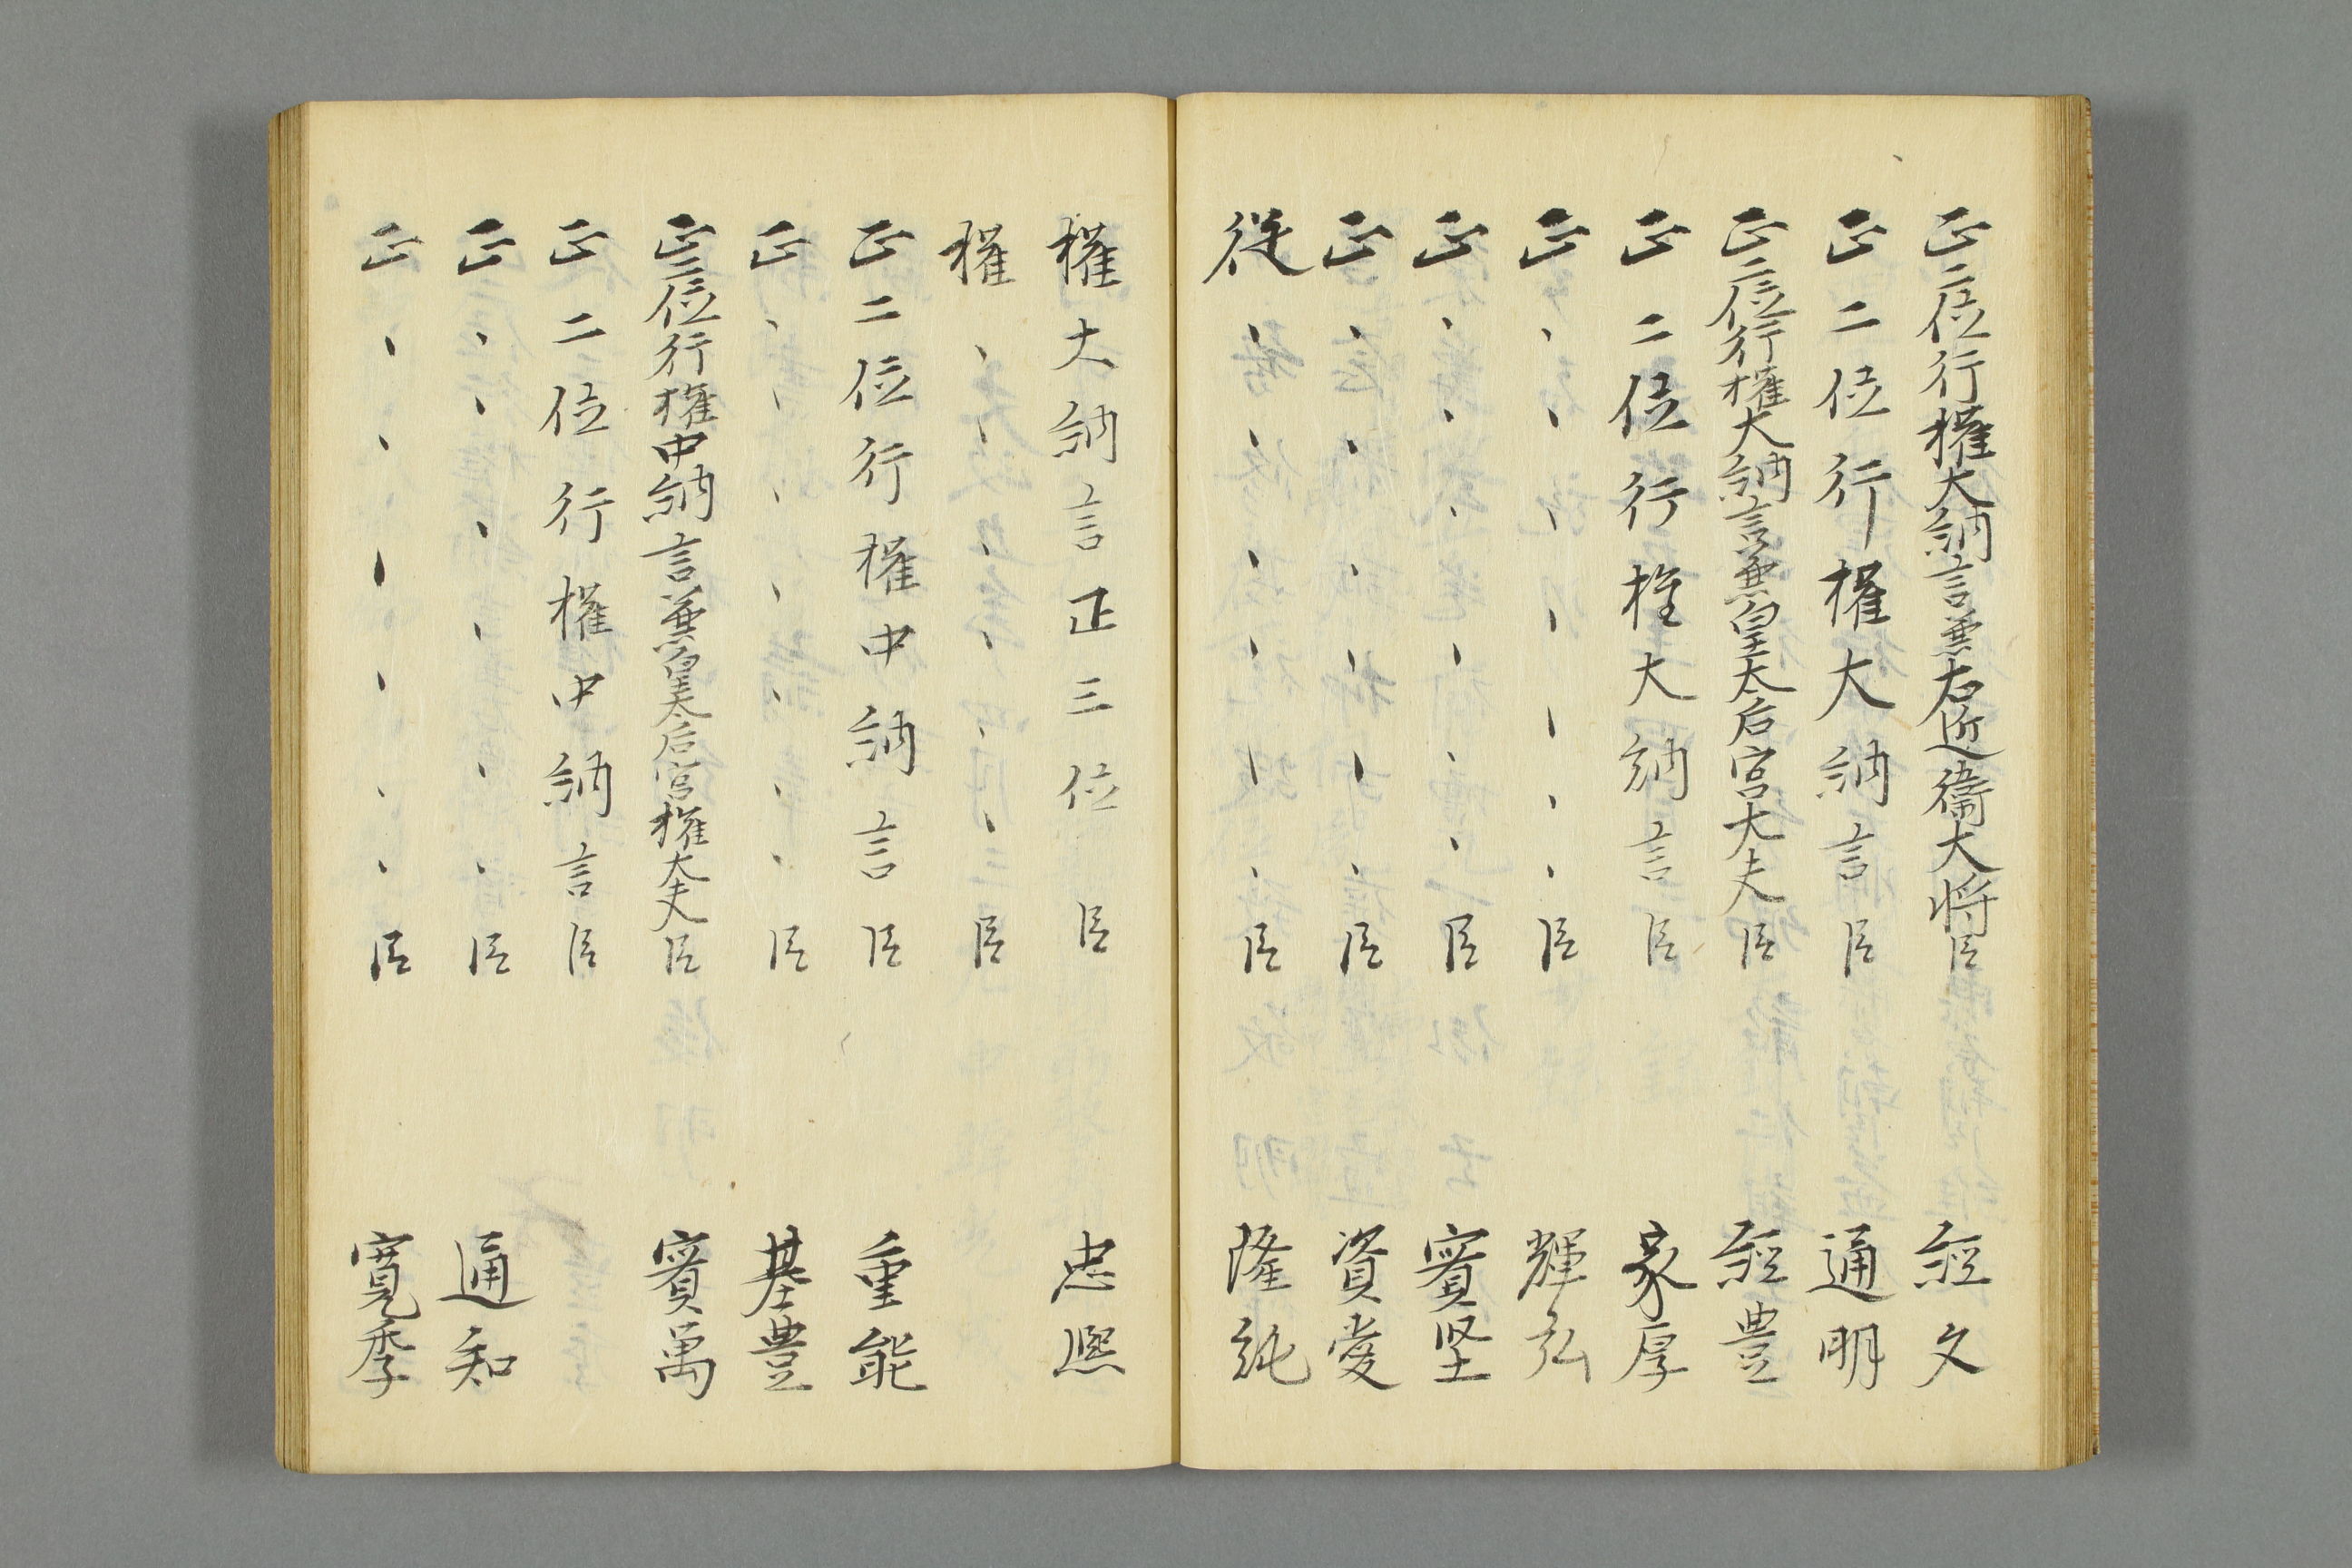 正二位行權大納言兼右近衛大将臣 經文
正二位行權大納言臣 通明
正二位行權大納言兼皇太后宮大夫臣 經豊
正二位行權大納言臣 家厚
正、、、、、、、臣 輝弘
正、、、、、、臣 實堅
正、、、、、、臣 資愛
從、、、、、、臣 隆純
權大納言正三位臣 忠熈
權、、、、、、臣
正二位行權中納言臣 重能
正、、、、、、、臣 基豊
正二位行權中納言兼皇太后宮權大夫臣 實萬
正二位行權中納言臣
正、、、、、、臣 通知
正、、、、、、臣 寛季